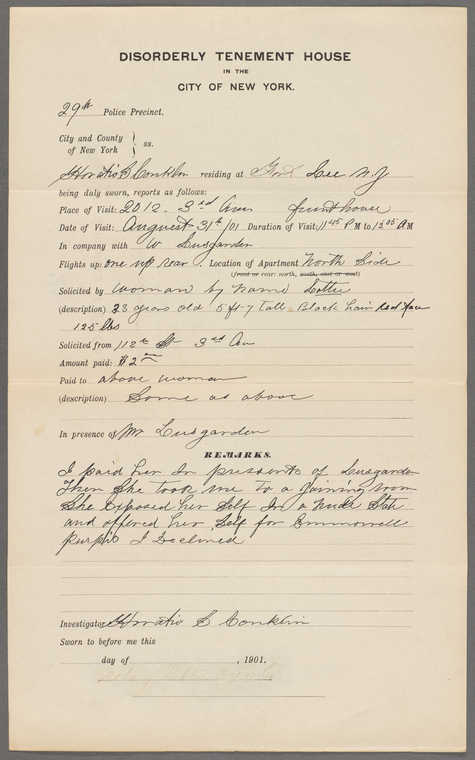 DISORDERLY TENEMENT HOUSE
IN THE
CITY OF NEW YORK.
29th Police Precinct.
City and County
of New York } ss.
Horatio S Conklin residing at Fort Lee N.J
being duly sworn, reports as follows:
Place of Visit: 2012 - 3rd Ave front house
Date of Visit: August 31th /01 Duration of Visit: 11 45 P M to 12 05 A M
In company with W Lusgarden
Flights up: one up rear. Location of Apartment North Side
(front or rear: north, south, east or west)
Solicited by woman by name Lottie
(description) 23 years old 5 ft-7 tall Black hair Red Face
125 lbs
Solicited from 112th St 3rd Av
Amount paid: $2
Paid to above woman
(description) Same as above
In presence of Mr Lusgarden
REMARKS.
I paid her In presents of Lusgarden
Then She took me to a joining room
She Exposed her Self In a nude State
and offered her Self for Emmorell
purpis I Declined
Investigator Horatio S Conklin
Sworn to before me this
day of , 1901.